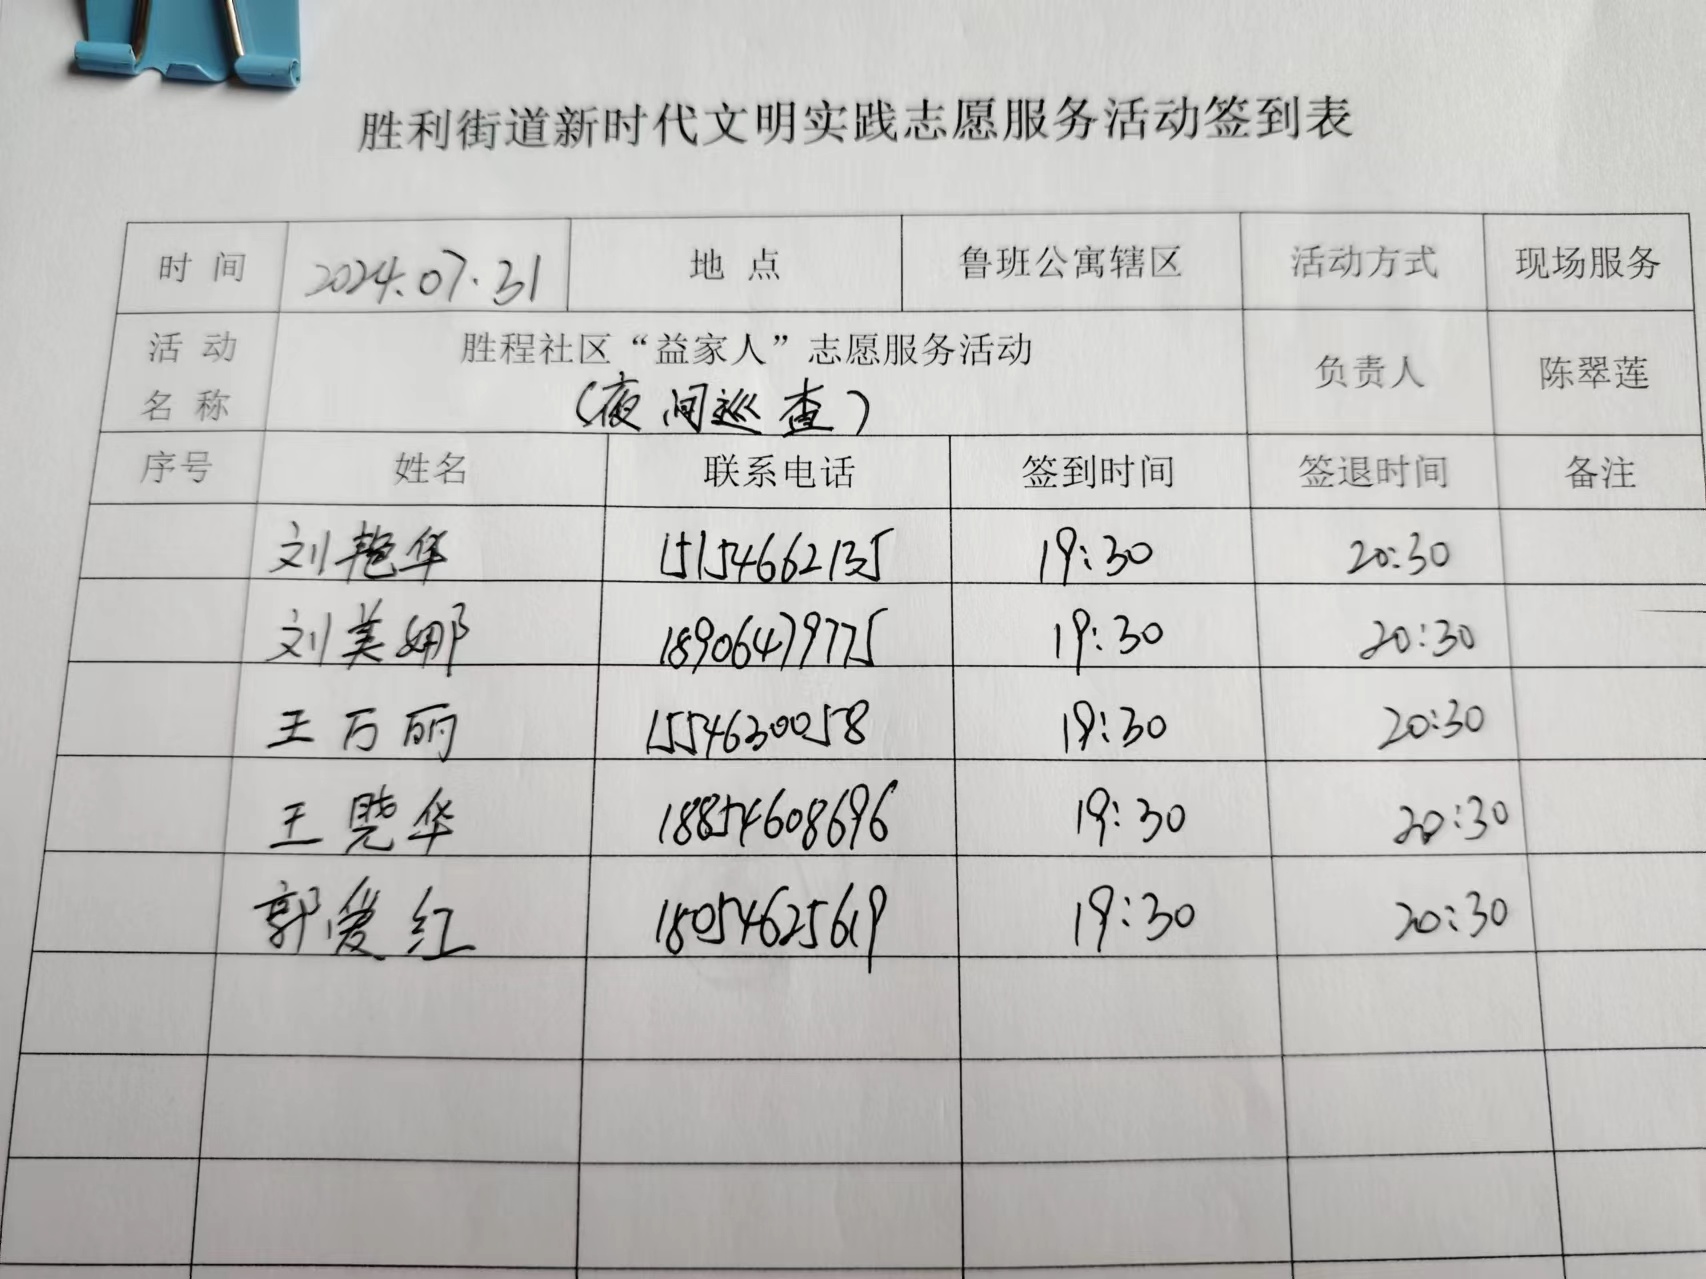 胜利街道新时代文明实践志愿服务活动签到表
时 间 2024.07.31 地 点 鲁班公寓辖区 活动方式 现场服务
活 动 名 称 胜程社区“益家人”志愿服务活动 负责人 陈翠莲
(夜间巡查)
序号 姓名 联系电话 签到时间 签退时间 备注
刘艳华 15154662135 19:30 20:30
刘美娜 18906479775 19:30 20:30
王万丽 15546300058 19:30 20:30
王晓华 18854608696 19:30 20:30
郭爱红 18054625619 19:30 20:30